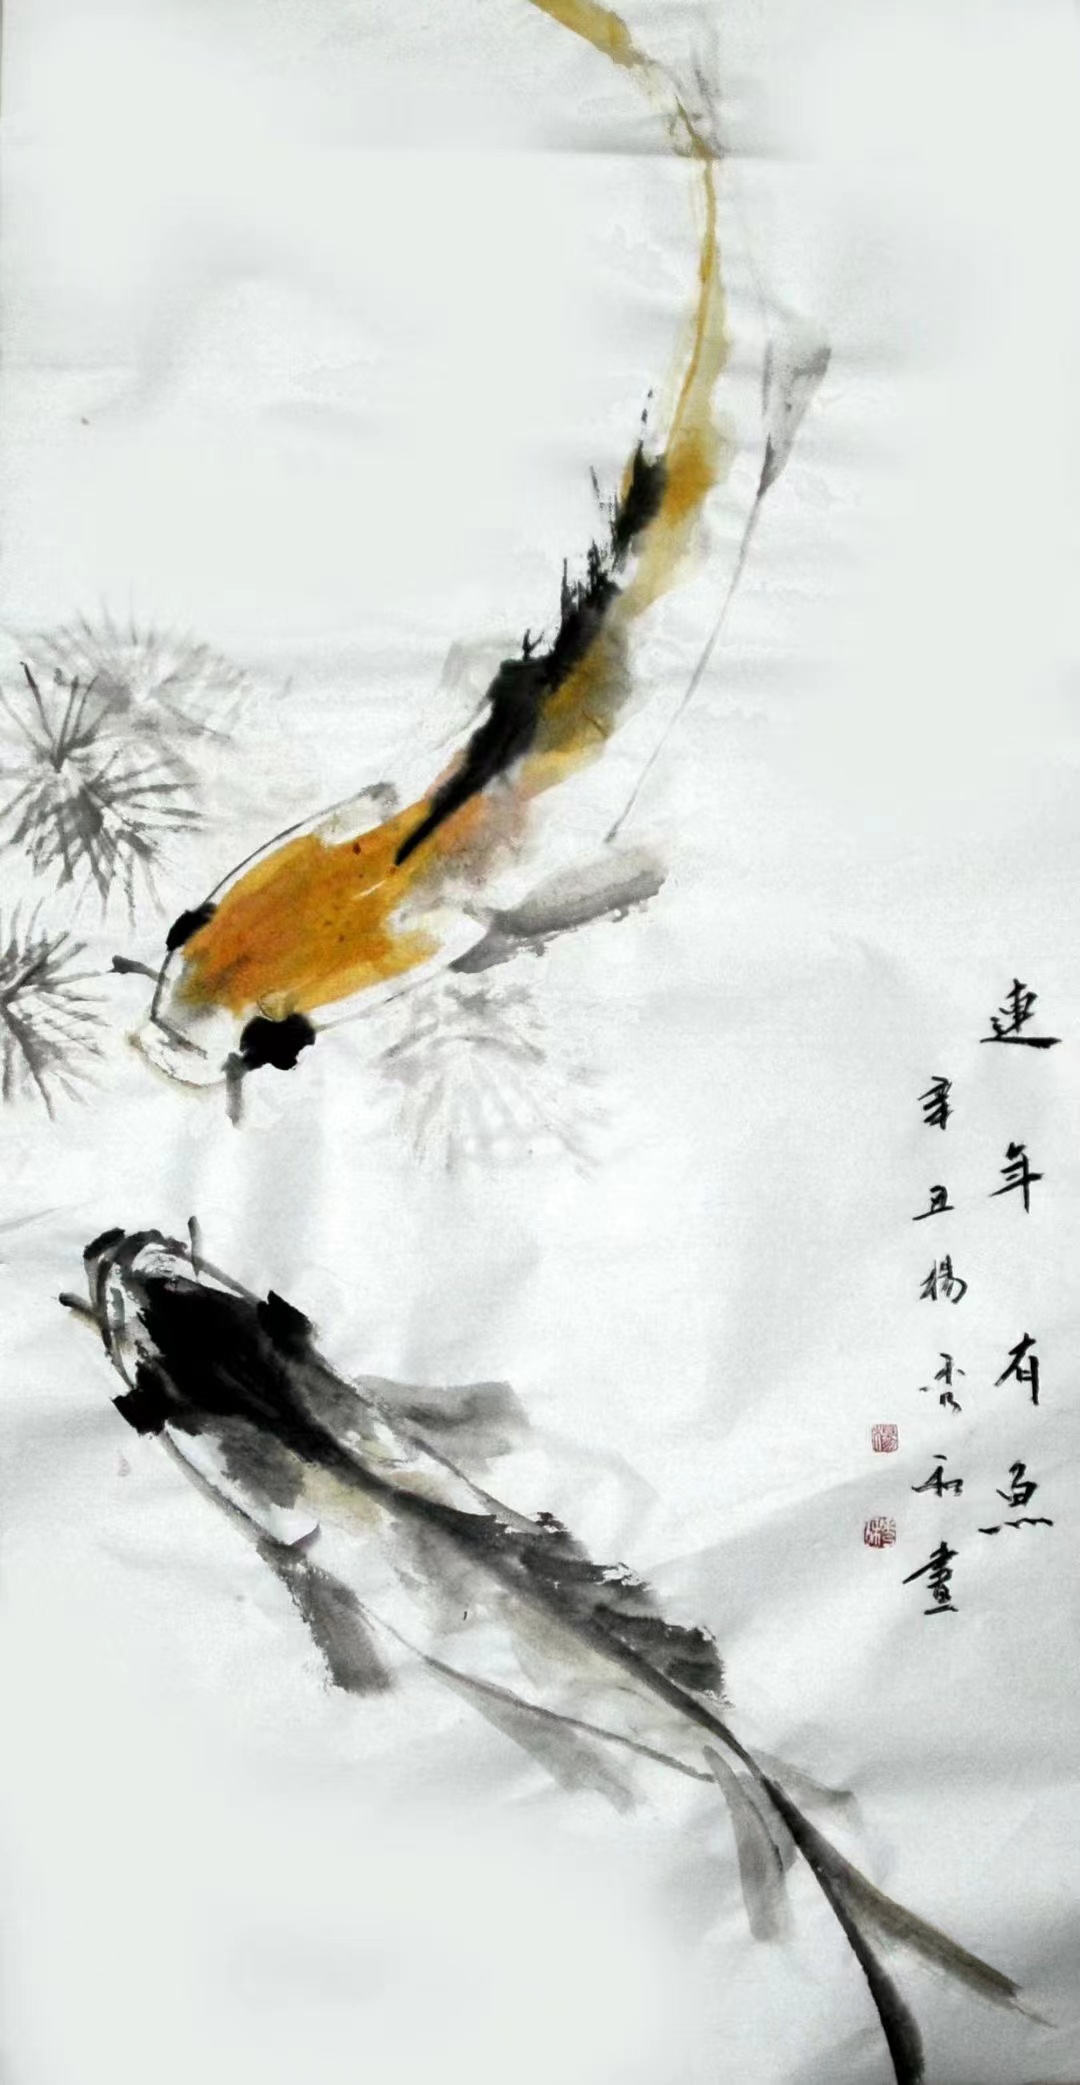 連年有魚
辛丑楊雲和畫